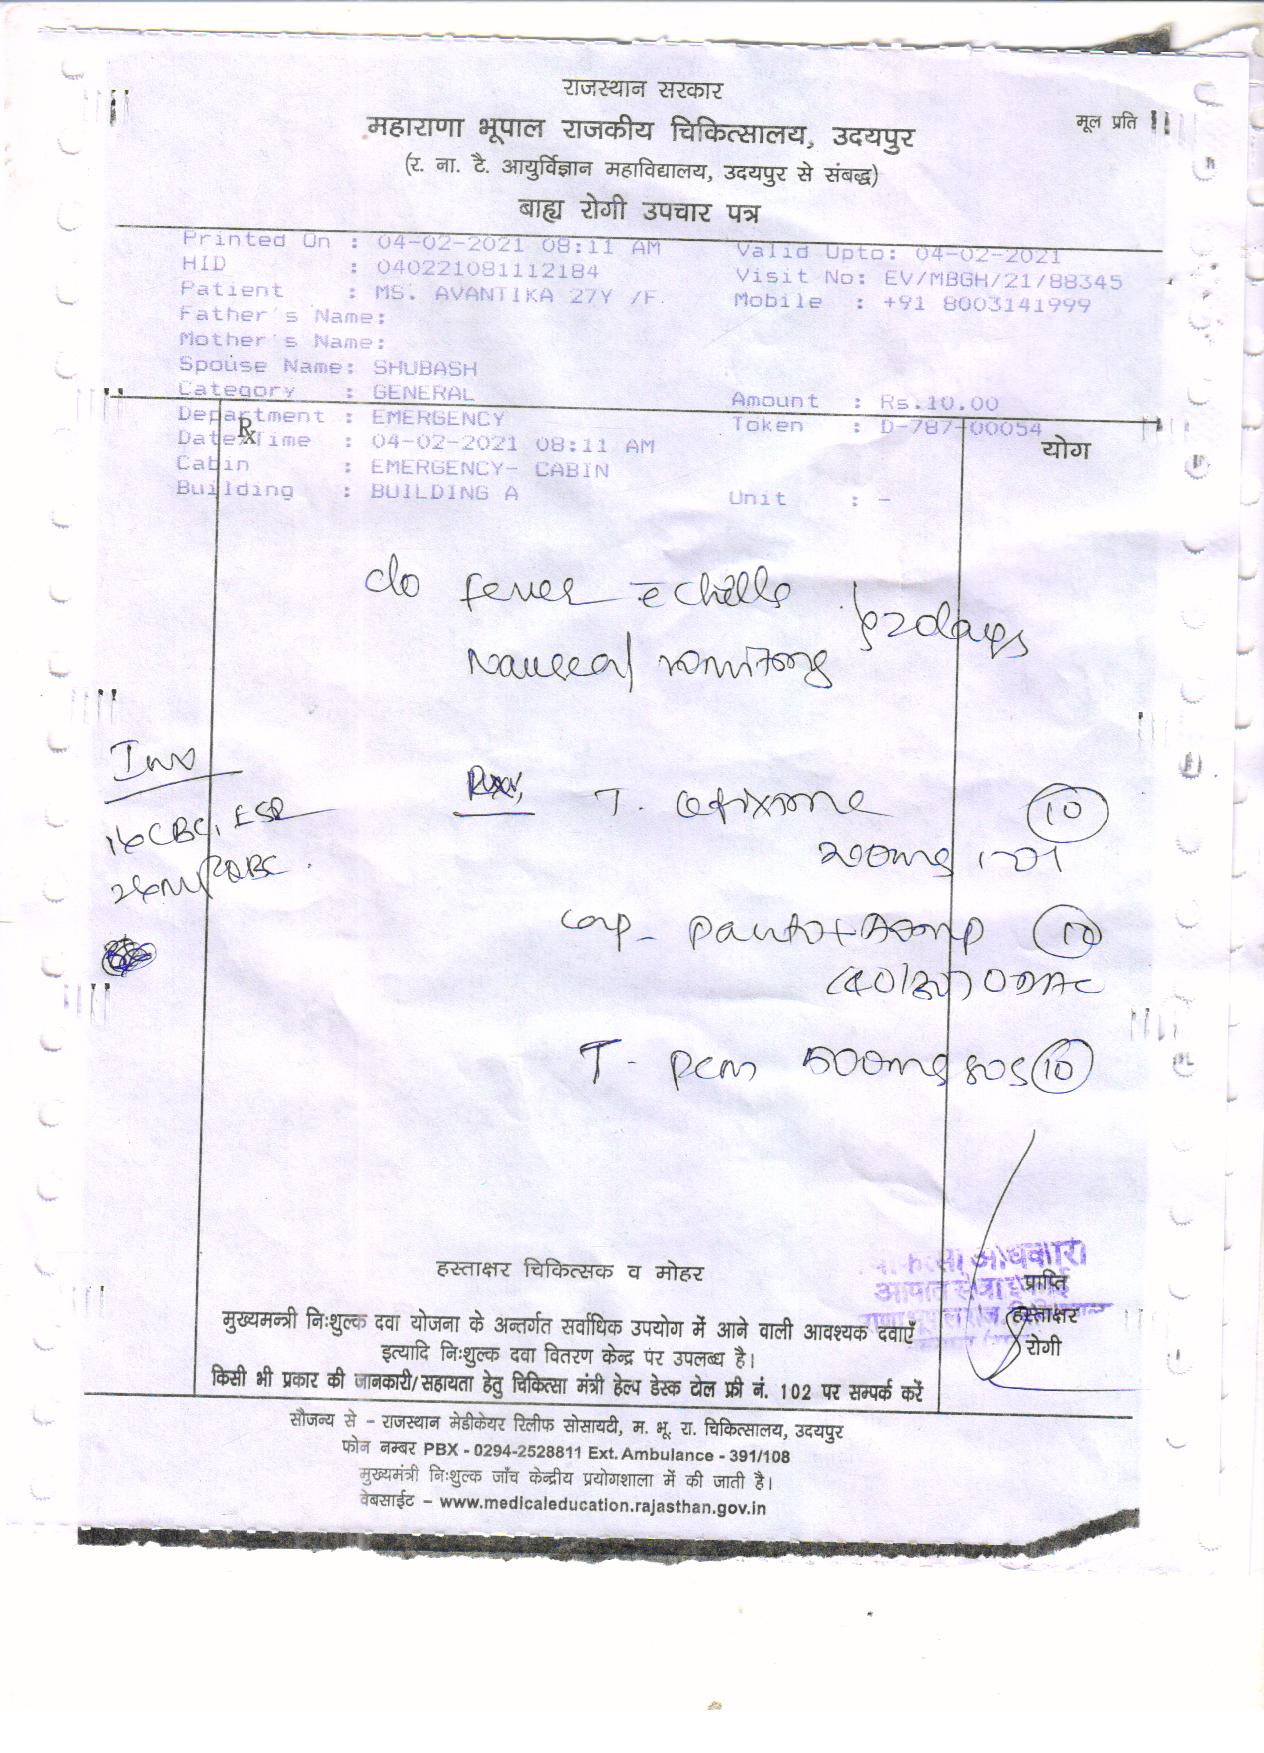 राजस्थान सरकार
महाराणा भूपाल राजकीय चिकित्सालय, उदयपुर
मूल प्रति
(र. ना. टै. आयुर्विज्ञान महाविद्यालय, उदयपुर से संबद्ध)
बाह्य रोगी उपचार पत्र
Printed On : 04-02-2021 08:11 AM Valid Upto: 04-02-2021
HID : 040221081112184 Visit No: EV/MBGH/21/88345
Patient : MS. AVANTIKA 27Y /F. Mobile : +91 8003141999
Father's Name:
Mother's Name:
Spouse Name: SHUBASH
Category : GENERAL Amount : Rs.10.00
Department : EMERGENCY Token : D-787-00054
Rx
Date/Time : 04-02-2021 08:11 AM
योग
Cabin : EMERGENCY- CABIN
Building : BUILDING A Unit : -
c/o fever c̄ chills
Nausea/vomiting
2days
Inv
CBC, ESR
T. Cefixime 10
200mg 1-01
Cap- Panto+Domp 10
(40/30) OD AC
T- pcm 500mg SOS 10
हस्ताक्षर चिकित्सक व मोहर
प्राप्ति
हस्ताक्षर
रोगी
मुख्यमन्त्री निःशुल्क दवा योजना के अन्तर्गत सर्वाधिक उपयोग में आने वाली आवश्यक दवाएँ
इत्यादि निःशुल्क दवा वितरण केन्द्र पर उपलब्ध है।
किसी भी प्रकार की जानकारी/सहायता हेतु चिकित्सा मंत्री हेल्प डेस्क टोल फ्री नं. 102 पर सम्पर्क करें
सौजन्य से – राजस्थान मेडीकेयर रिलीफ सोसायटी, म. भू. रा. चिकित्सालय, उदयपुर
फोन नम्बर PBX - 0294-2528811 Ext. Ambulance - 391/108
मुख्यमंत्री निःशुल्क जाँच केन्द्रीय प्रयोगशाला में की जाती है।
वेबसाईट – www.medicaleducation.rajasthan.gov.in